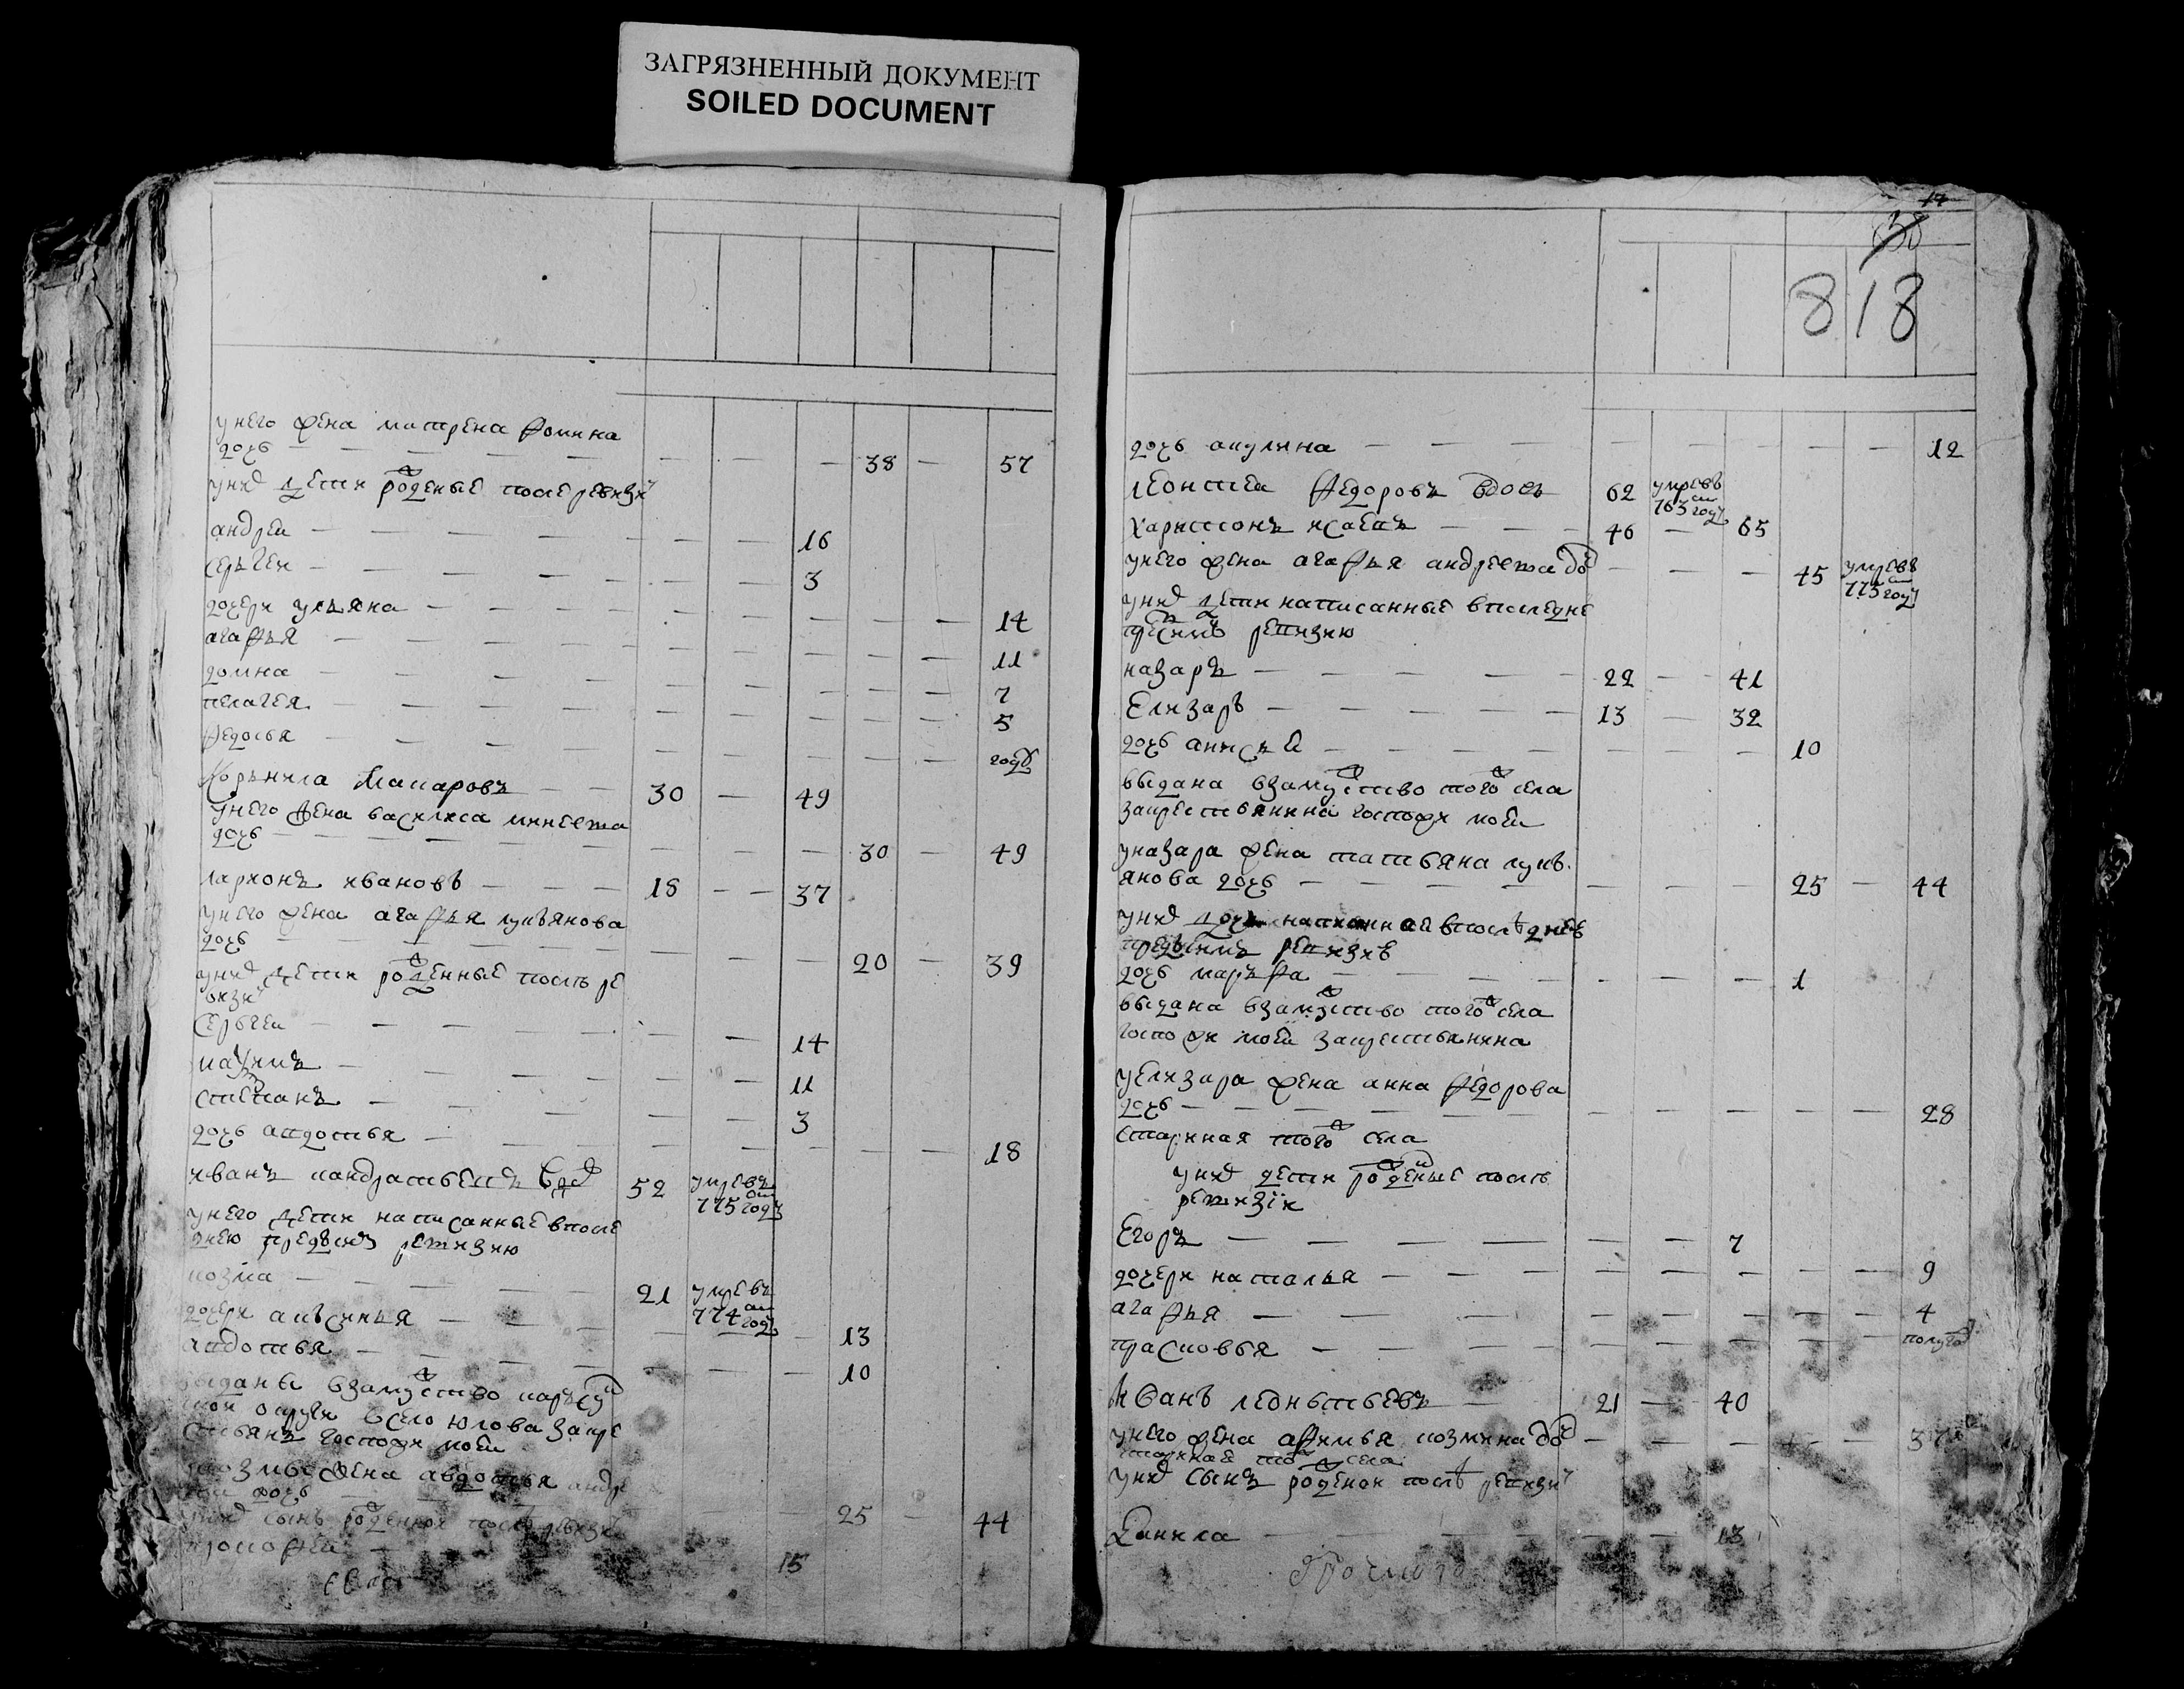 ЗАГРЯЗНЕННЫЙ ДОКУМЕНТ
SOILED DOCUMENT
унего жена матрена фомина
дочь — 38 — 57
уних дети роденые после ревизи
андреи — 16
сергеи — 3
дочери ульяна — 14
агафья — 11
домна — 7
пелагея — 5
федосья — году
Корънила Макаровъ — 30 — 49
унего жена василиса минеева
дочь — 30 — 49
ларионъ ивановъ — 18 — 37
унего жена агафья лукьянова
дочь — 20 — 39
уних дети роденные послъ ре
визи
Сергеи — 14
11
степанъ — 3
дочь авдотья — 18
иванъ кандратьевъ 52 умревъ 775 году
унего дети написанные впосле
днею предъ сим ревизию
козма — 21 умревъ 774 году
дочери аксинья — 13
авдотья — 10
выданы взамужство
округи всело юлова закре
стьянъ господи моеи
козмы жена авдотья андре
дочь — 25 — 44
уних сынъ роденнои послъ ревизи
15
17
818
дочь акулина — 12
леонтеи Федоровъ вдовъ 62 умревъ 763 году
Харитонъ исаевъ — 46 — 65
унего жена агафья андреева до — 45 умревъ 773 году
уних дети написанные впоследне
предсимъ ревизию
назаръ — 22 — 41
Елизаръ — 13 — 32
дочь анисья — 10
выдана взамужство того села
закрестьянина господи моеи
уназара жена татьяна лукъ
янова дочь — 25 — 44
уних дочь впоследнеъ
предсимъ ревизиъ
дочь маръфа — 1
выдана взамужство того села
господи моеи закрестьянина
уелизара жена анна федорова
дочь — 28
старинная того села
уних дети роденые послъ
ревизiи
Егоръ — 7
дочери наталья — 9
агафья — 4
прасковья — полугод
иванъ леоньтьевъ — 21 — 40
унего жена афимья козмина до — 37
того села
уних сынъ роденои послъ ревизи
Данила — 13